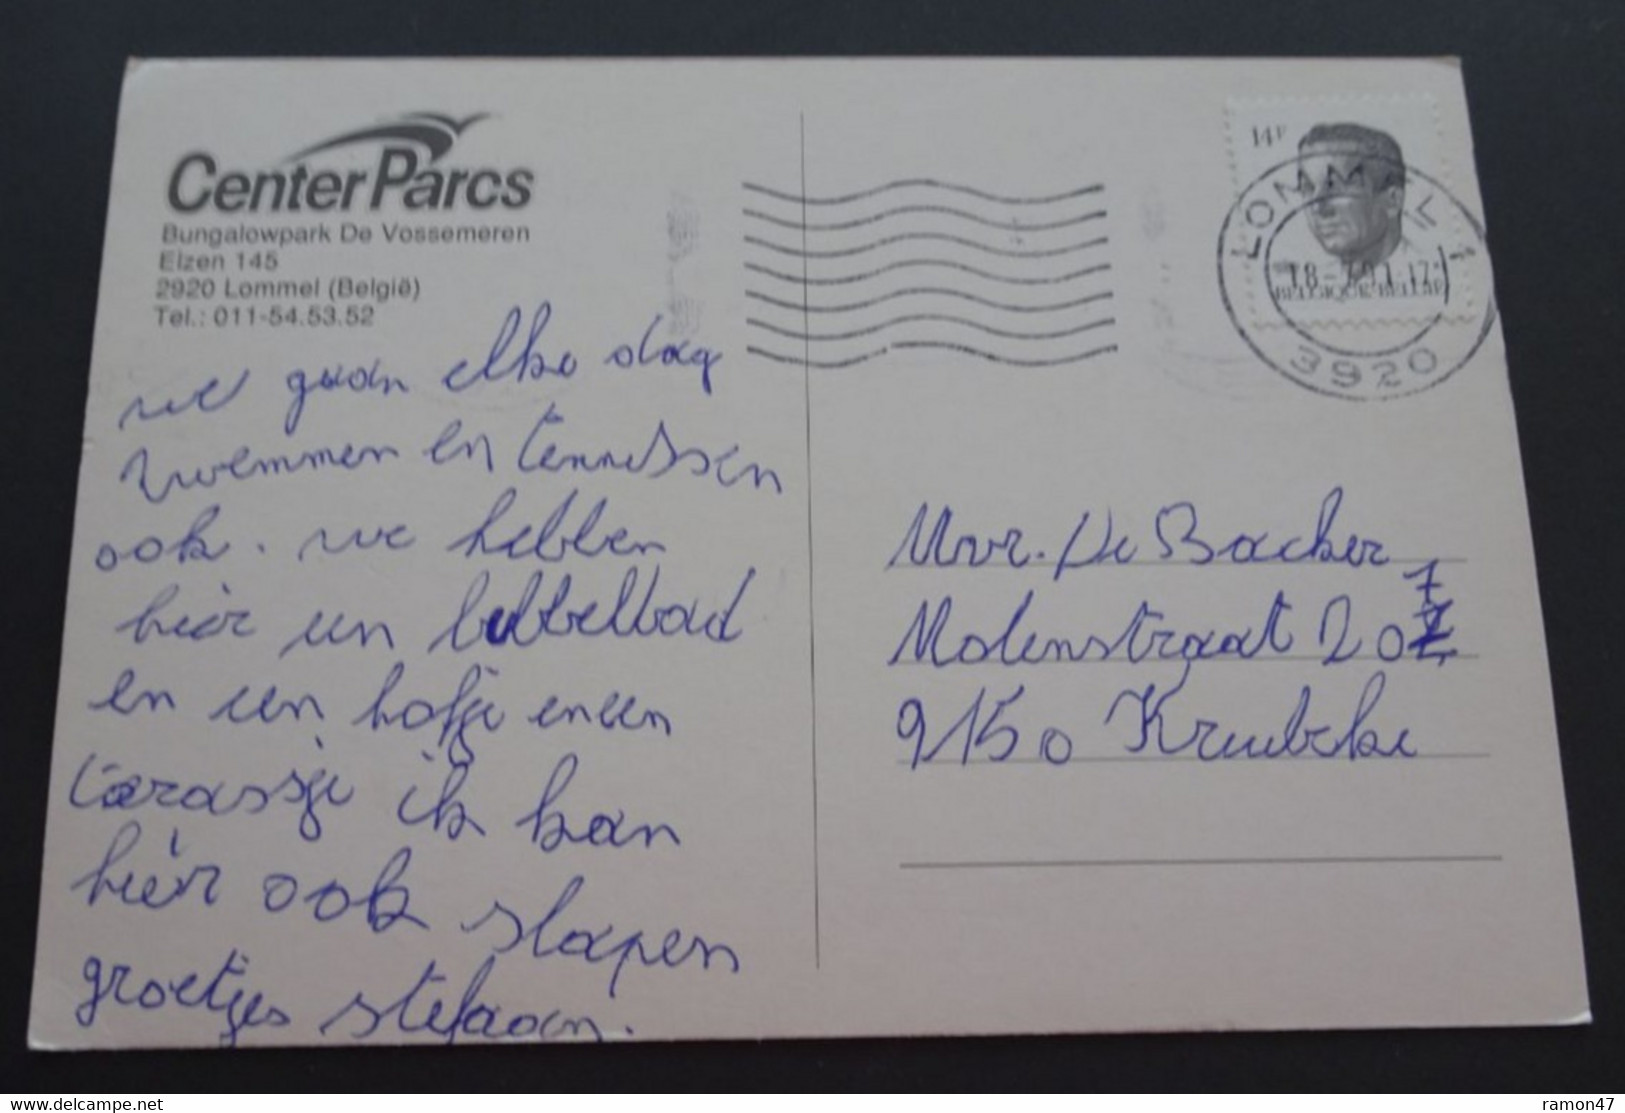 Center Parcs
Bungalowpark De Vossemeren
Elzen 145
2920 Lommel (België)
Tel.: 011-54.53.52
we gaan elke dag
zwemmen en tennissen
ook. we hebben
hier een bubbelbad
en een hofje en een
terassje ik kan
hier ook slapen
groetjes stefaan.
14F
BELGIQUE-BELGIE
LOMMEL 1
18-7
3920
Mvr. De Backer
Molenstraat 207
9150 Kruibeke
delcampe.net
ramon47